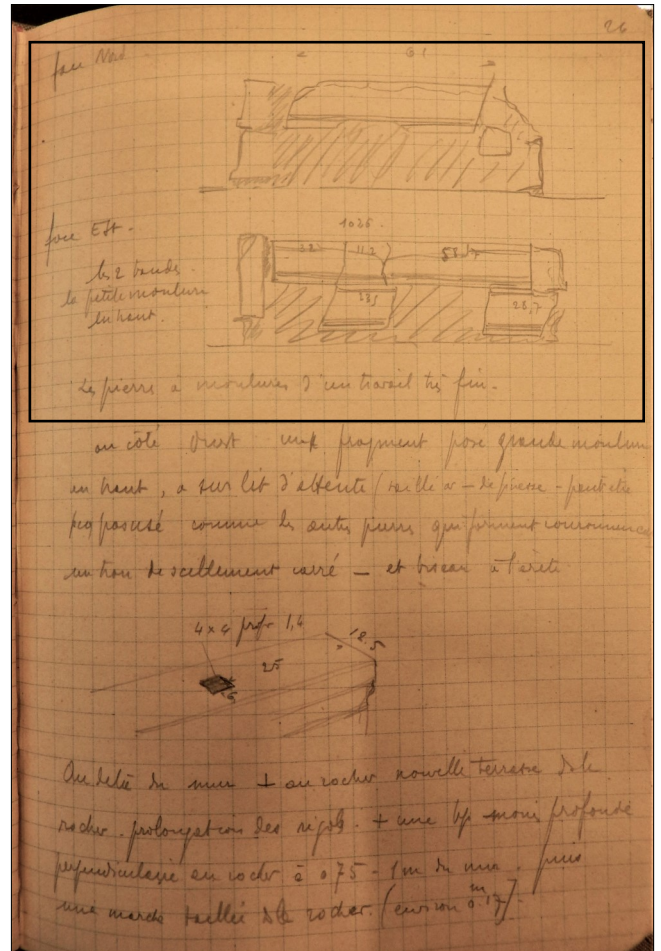 26
face Nord
61
face Est -
1026
32 11,2 53,7
les 2 bandes
la petite moulure
en haut.
285 28,7
Les pierre à moulures d'un travail très fin -
au côté Ouest un fragment posé grande moulure
en haut, a sur lit d'attente (taille - de pierre - peut être
comme les autres pierres qui forment couronnement
un trou de scellement carré — et biseau à l'arête
4 x 4 prof 1,4
12.5
25
6
Au delà du mur + au rocher nouvelle terrasse ds le
rocher - prolongation des rigoles + une moins profonde
perpendiculaire au rocher à 0 75 - 1m du mur - puis
une marche taillée ds le rocher. (environ 0.17).
m